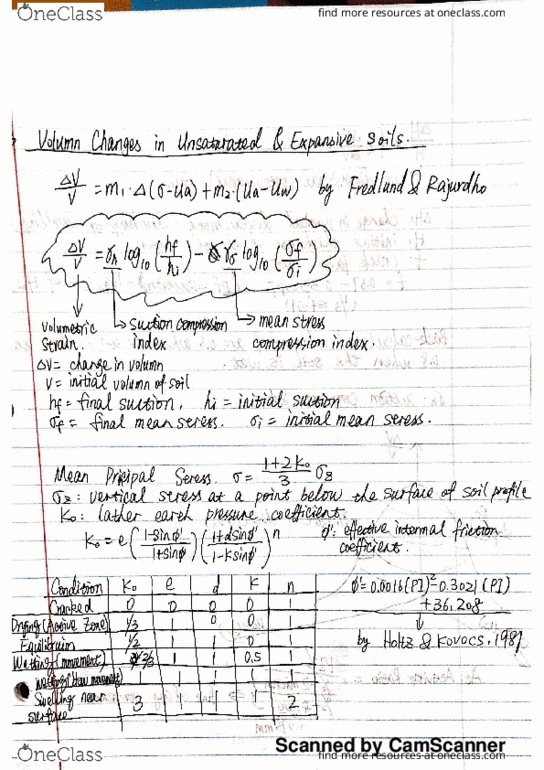 OneClass
find more resources at oneclass.com
Volumn Changes in Unsaturated & Expansive Soils.
ΔV/V = m₁·Δ(σ-Ua)+m₂·(Ua-Uw) by Fredlund & Rajurdho
ΔV/V = γh log₁₀(hf/hi) - γσ log₁₀(σf/σi)
volumetric strain.
Suction compression index
mean stress compression index.
ΔV = change in volumn
V = initial volumn of soil
hf = final suction, hi = initial suction
σf = final mean stress. σi = initial mean stress.
Mean Pricipal Seress σ = (1+2K₀)/3 σz
σz: vertical stress at a point below the surface of soil profile
K₀: lather earth pressure coefficient.
K₀ = e((1-sinφ')/(1+sinφ'))((1+dsinφ')/(1-ksinφ'))ⁿ φ': effective internal friction coefficient.
Condition K₀ e d K n
Cracked 0 0 0 0 1
Drying (Active Zone) 1/3 1 0 0 1
Equilibrium 1/2 1 1 0 1
Wetting (movement) 2/3 1 1 0.5 1
1 1 1 1 1
Swelling near surface 3 1 1 1 2
φ' = 0.0016(PI)² - 0.3021(PI) + 36.208
by Holtz & Kovocs, 1981
Scanned by CamScanner
OneClass
find more resources at oneclass.com